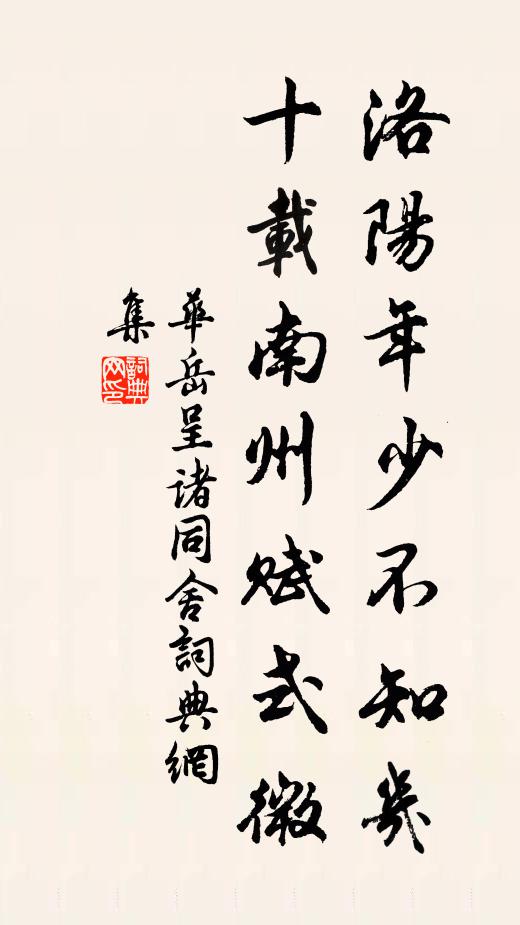 洛陽年少不知幾
十載南州賦式微
華岳呈諸同舍詞典網
集
詞典網印